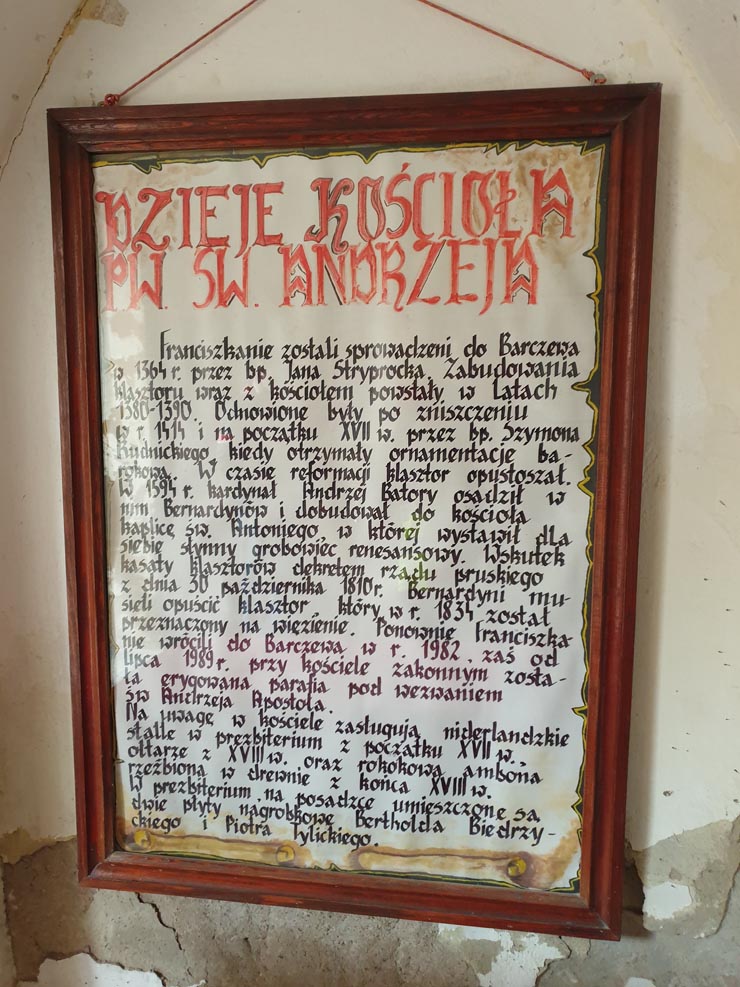 DZIEJE KOŚCIOŁA
PW. ŚW. ANDRZEJA
Franciszkanie zostali sprowadzeni do Barczewa
w 1364 r. przez bp. Jana Stryprocka. Zabudowania
klasztoru wraz z kościołem powstały w Latach
1380-1390. Odnowione były po zniszczeniu
w r. 1414 i na początku XVII w. przez bp. Szymona
Rudnickiego, kiedy otrzymały ornamentację ba-
rokową. W czasie reformacji klasztor opustoszał.
W 1594 r. kardynał Andrzej Batory osadził w
nim Bernardynów i dobudował do kościoła
kaplicę św. Antoniego, w której wystawił dla
siebie słynny grobowiec renesansowy. Wskutek
kasaty klasztorów dekretem rządu pruskiego
z dnia 30 października 1810 r. Bernardyni mu-
sieli opuścić klasztor, który w r. 1834 został
przeznaczony na więzienie. Ponownie Franciszka-
nie wrócili do Barczewa w r. 1982, zaś od
lipca 1989 r. przy kościele zakonnym zosta-
ła erygowana parafia pod wezwaniem
św Andrzeja Apostoła.
Na uwagę w kościele zasługują niderlandzkie
stalle w prezbiterium z początku XVII w.,
ołtarze z XVIII w. oraz rokokowa ambona
rzeźbiona w drewnie z końca XVIII w.
W prezbiterium na posadzce umieszczone są
dwie płyty nagrobkowe Bertholda Biedrzy-
ckiego i Piotra Tylickiego.